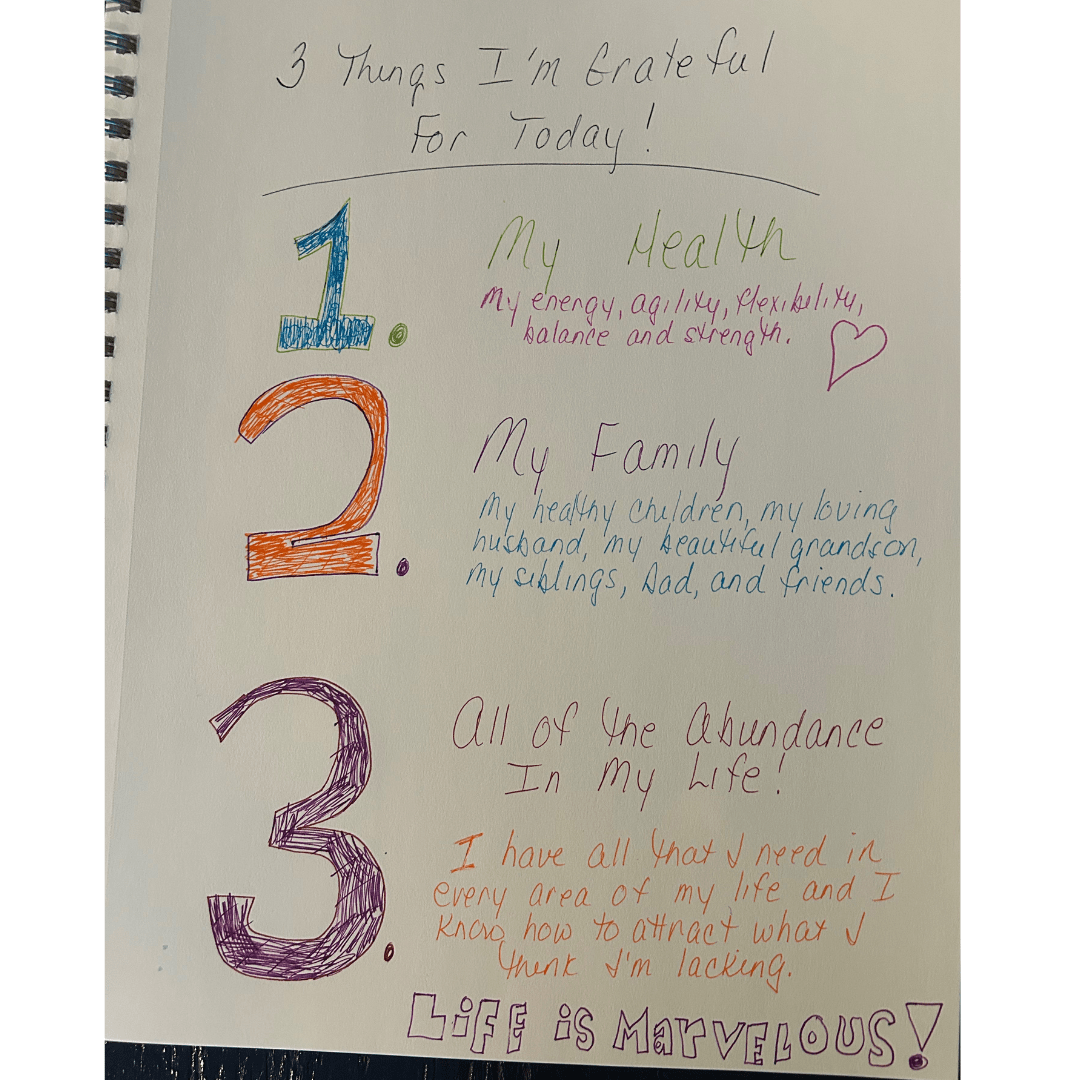 3 Things I'm Grateful
For Today!
1. My Health
My energy, agility, flexibility,
balance and strength.
2. My Family
My healthy children, my loving
husband, my beautiful grandson,
my siblings, Dad, and friends.
3. All of the Abundance
In My Life!
I have all that I need in
every area of my life and I
know how to attract what I
think I'm lacking.
LiFE iS MarVELOUS!